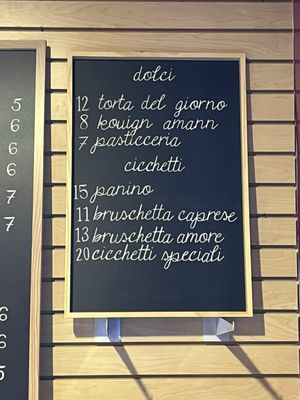 5
6
6
6
7
7
6
6
5
dolci
12 torta del giorno
8 kouign amann
7 pasticceria
cicchetti
15 panino
11 bruschetta caprese
13 bruschetta amore
20 cicchetti speciali